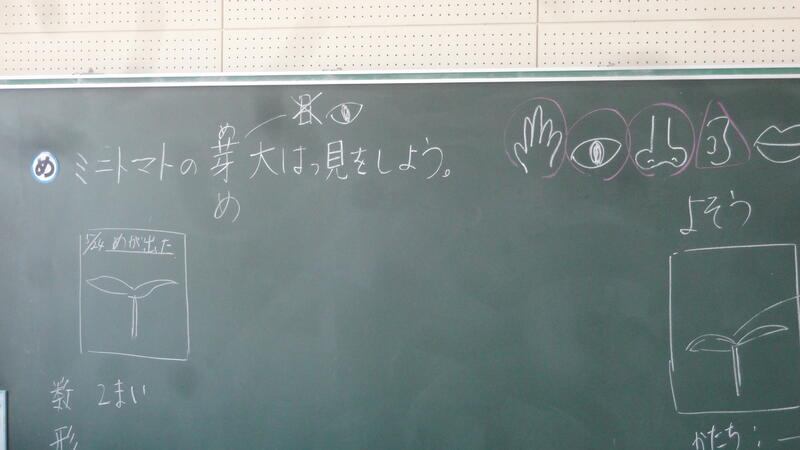 め ミニトマトの芽大はっ見をしよう。
め
め
5/24 めが出た
数 2まい
形
よそう
かたち：